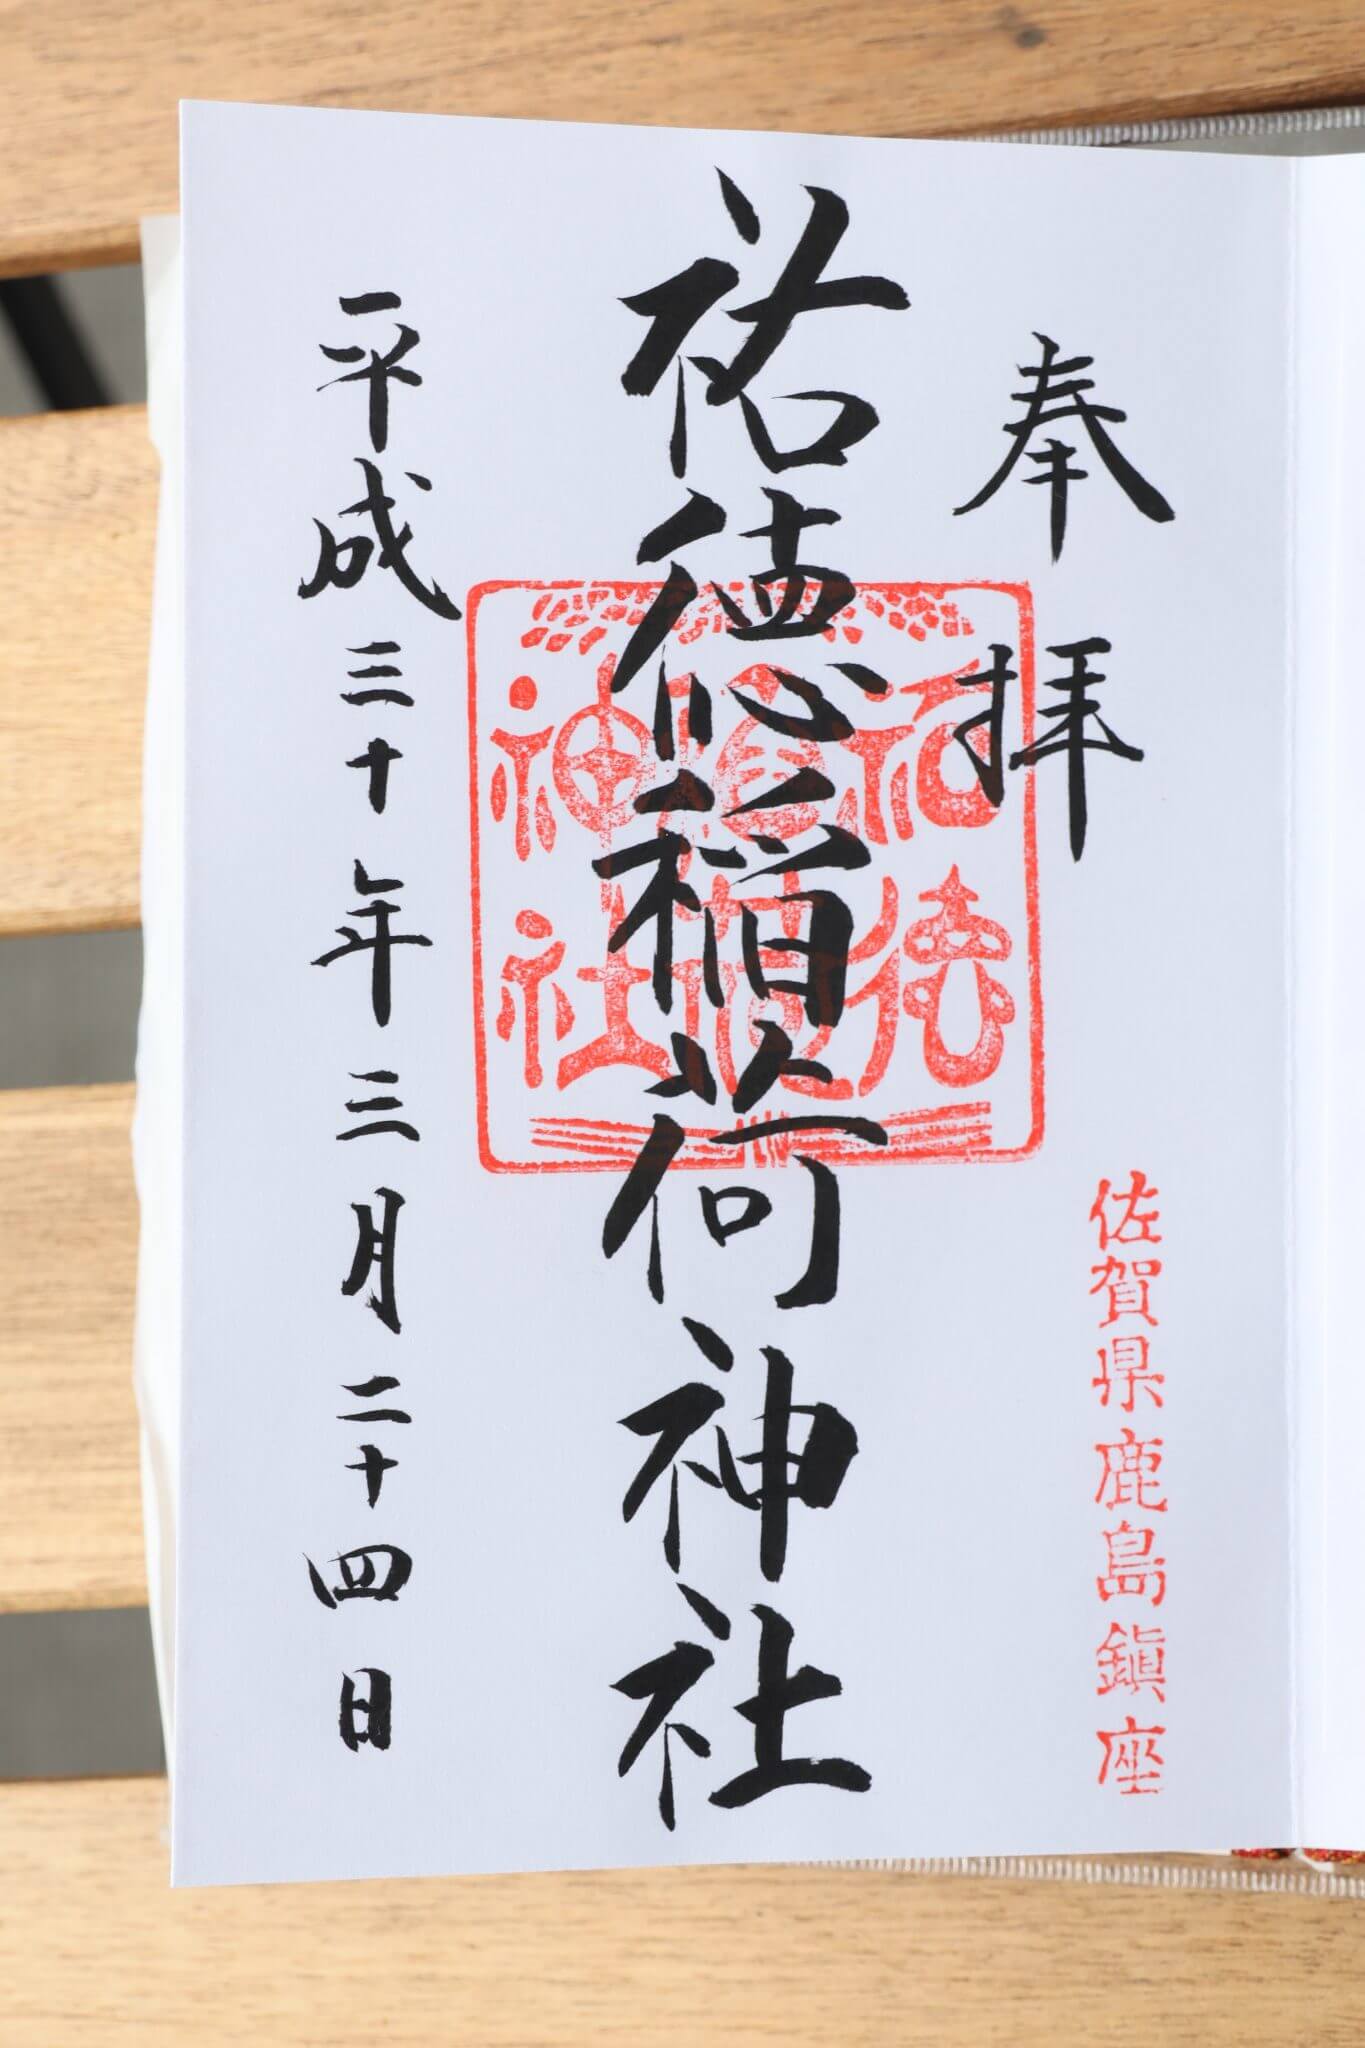 奉拝
佐賀県鹿島鎮座
祐徳稲荷神社
祐徳
稲荷
神社
平成三十年三月二十四日